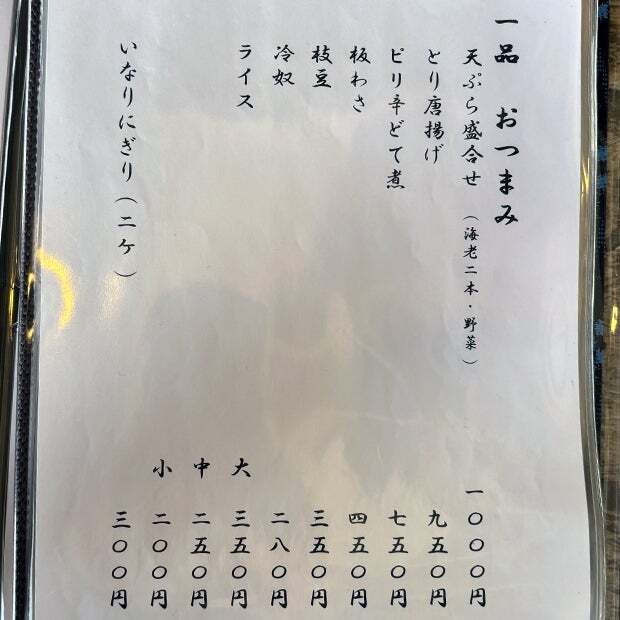 一品 おつまみ
天ぷら盛合せ (海老二本・野菜) 一〇〇〇円
とり唐揚げ 九五〇円
ピリ辛どて煮 七五〇円
板わさ 四五〇円
枝豆 三五〇円
冷奴 二八〇円
ライス 大 三五〇円
中 二五〇円
小 二〇〇円
いなりにぎり(二ケ) 三〇〇円